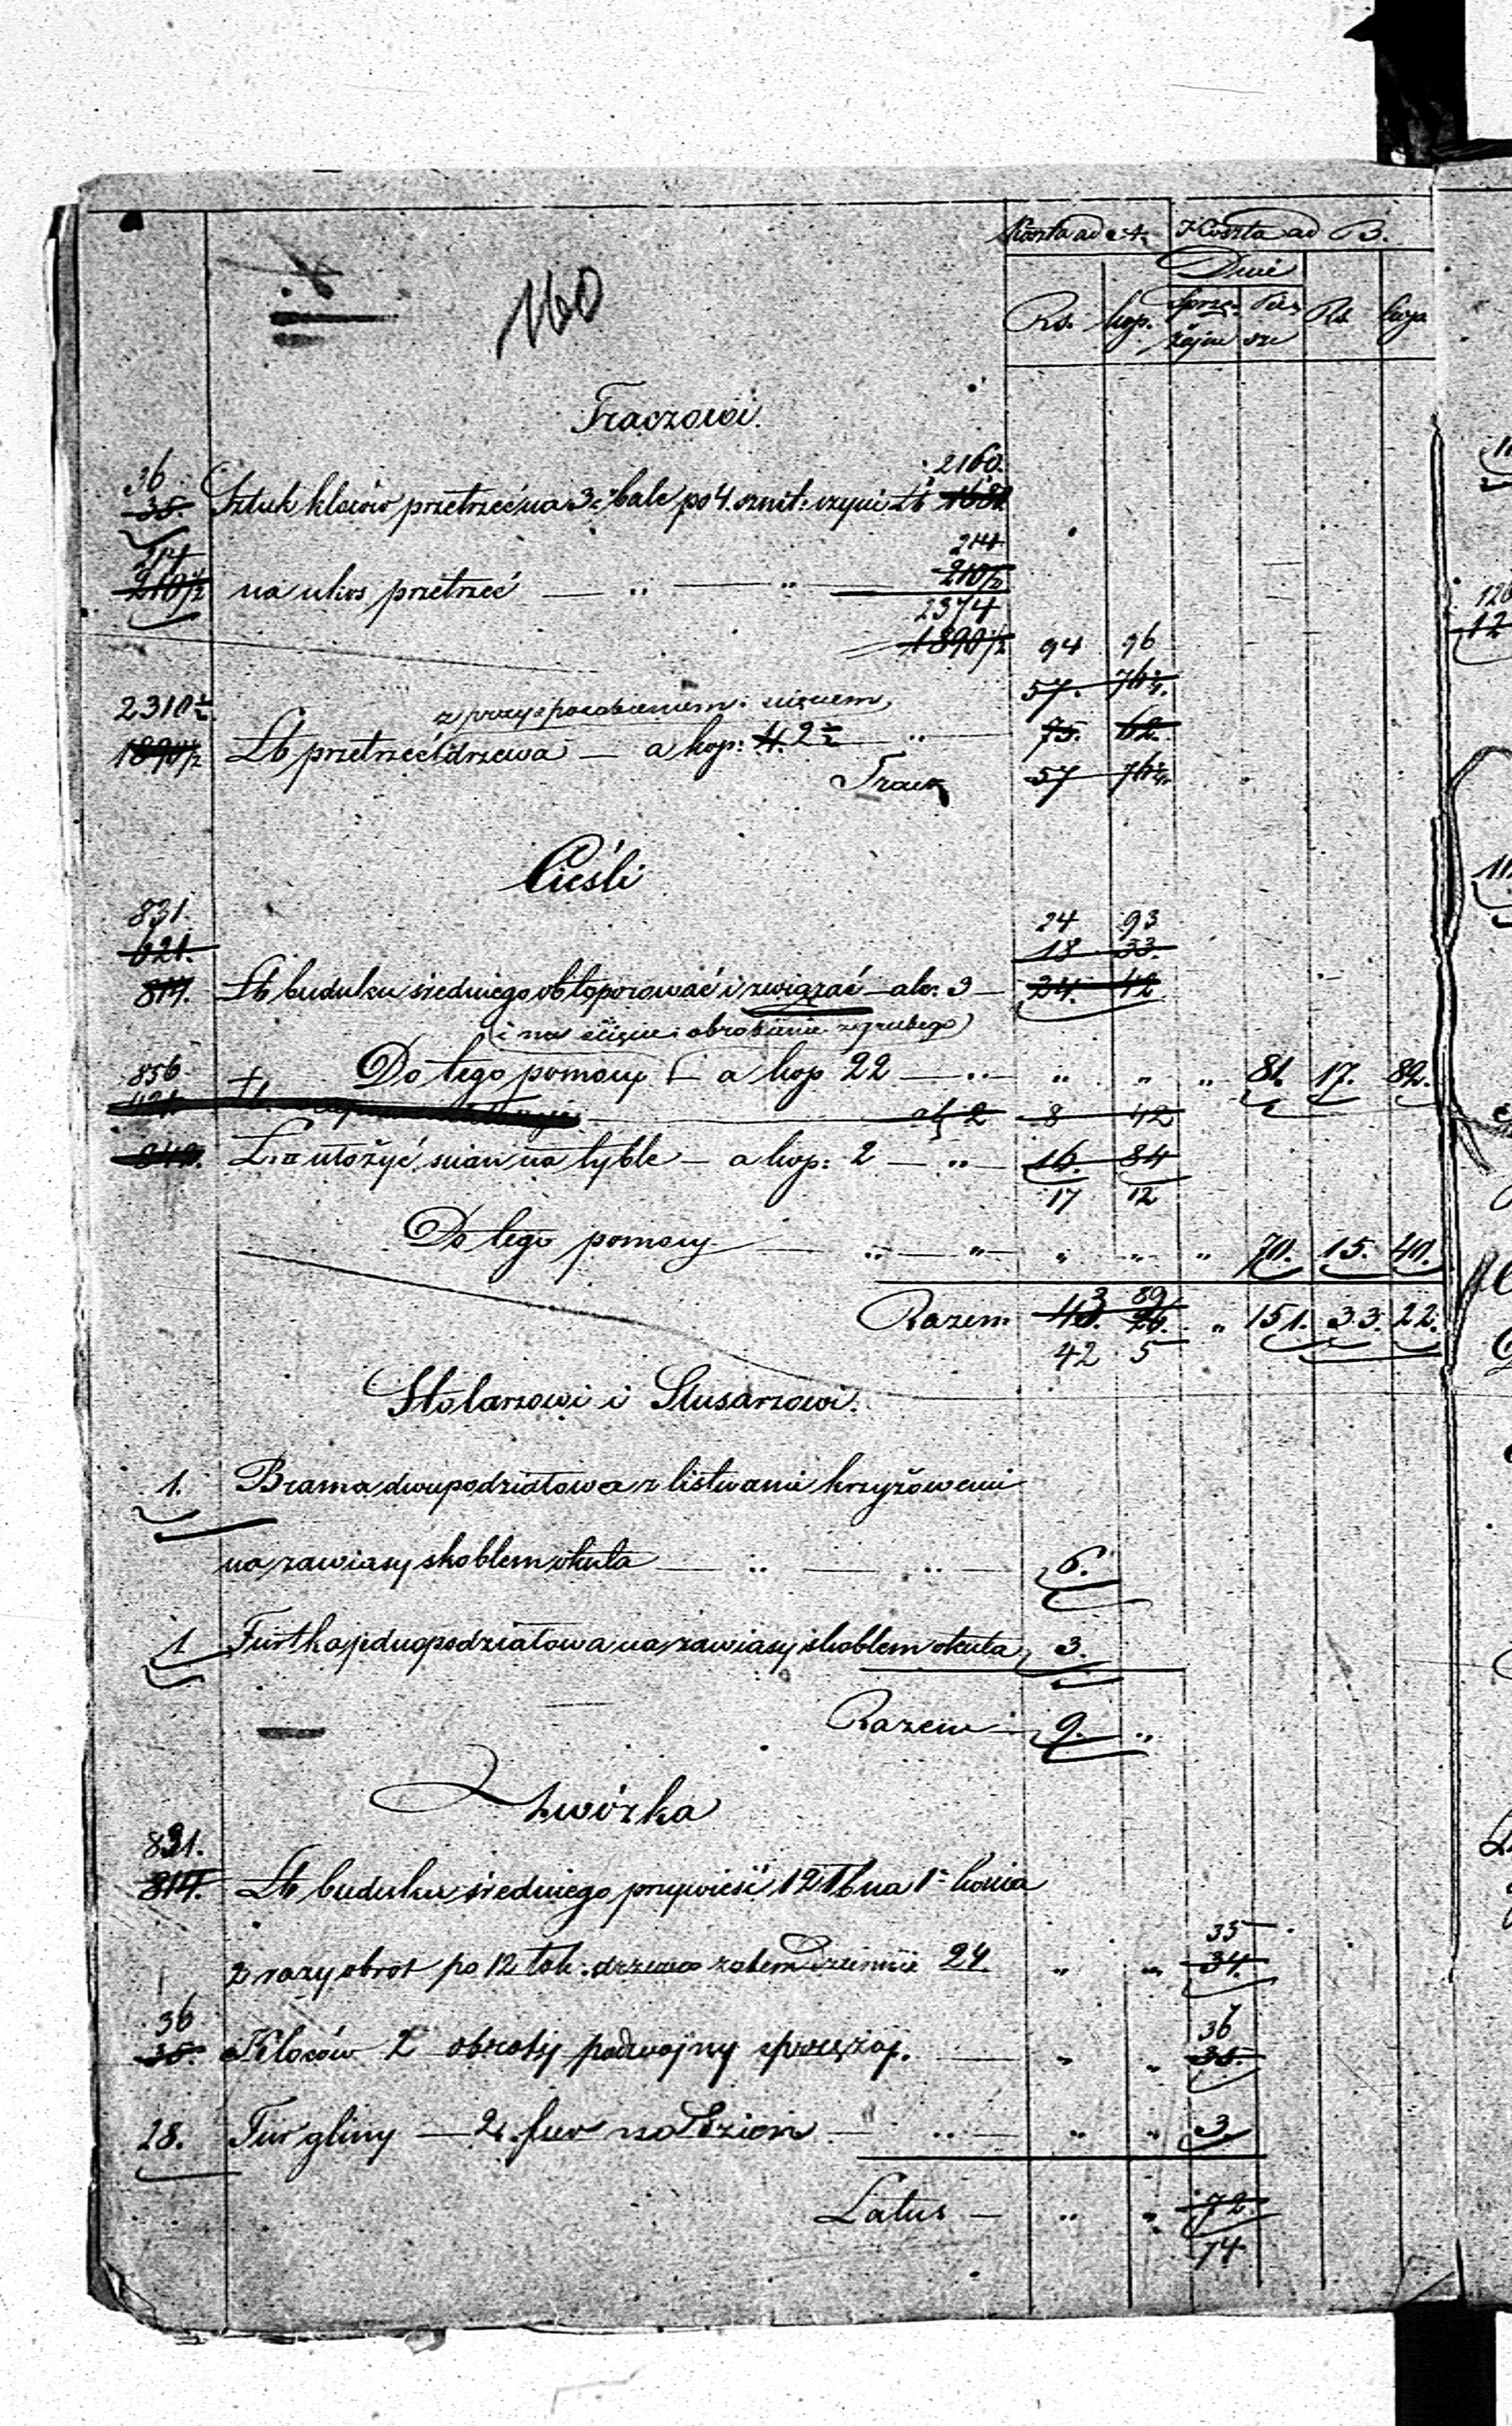 Koszta ad A. Koszta ad B.
Dnie
Rs. kop. Sprzę- Pie- Rs. kop.
żajne sze
160
Traczowi
36 2160.
35. Sztuk kloców przetrzeć na 3. bale po 4. sznit: czyni Łb 1680
214 214
210½ na ukos przetrzeć — „ — „ — 210½
2374
1890½ 94 96
57. 76¼
2310½ z przysposobieniem
1890½ Łb przetrzeć drzewa — a kop: 4. 2½ — „ 75. 62.
Tracz 57 76¼
Cieśli
831. 24 93
621. 18 33.
814. Łb budulcu średniego obtoporować i związać — a kr. 3 — 24. 42
(i na ścięcie i obrobienie z grubego)
856 Do tego pomocy — a kop 22 — „ — „ „ „ 81. 17. 82.
a 2 8 42
842. ułożyć ścian na tyble — a kop: 2 — „ — 16. 84
17 12
Do tego pomocy — „ — „ — „ „ „ 70. 15. 40.
Razem 43. 89 26. „ 151. 33. 22.
42 5
Stolarzowi i Slusarzowi.
1. Brama dwupodziałowa z listwami krzyżowemi
na zawiasy skoblem okuta — „ — „ — 6.
1 Furtka jednopodziałowa na zawiasy skoblem okuta 3.
Razem — 9. „
Zwózka
831.
814. Łb budulcu średniego przywieść 12 Łb na 1 konia
35
2 razy obrot po 12 łok: drzewa zatem dziennie 24. „ „ 34.
36 36
35. Kloców 2 obroty podwojny sprzężaj. — „ „ 35.
28. Fur gliny — 2. fur na dzień — „ — „ „ 3.
Latus — „ „ 72
74